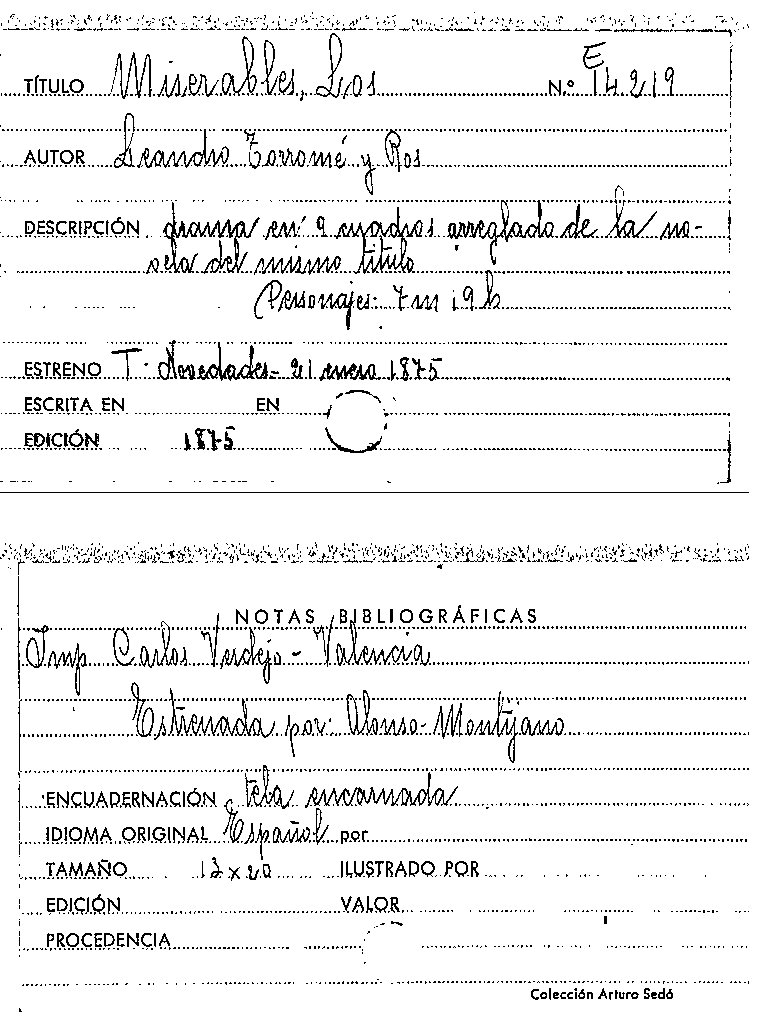 E
TÍTULO Miserables, Los N.º 14219
AUTOR Leandro Torromé y Ros
DESCRIPCIÓN drama en 9 cuadros arreglado de la no-
vela del mismo titulo
Personajes: 7 m 19 h
ESTRENO T. Novedades - 21 enero 1875
ESCRITA EN EN
EDICIÓN 1875
NOTAS BIBLIOGRÁFICAS
Imp Carlos Verdejo - Valencia
Estrenada por: Alonso - Montijano
ENCUADERNACIÓN tela encarnada
IDIOMA ORIGINAL Español por
TAMAÑO 13 x 20 ILUSTRADO POR
EDICIÓN VALOR
PROCEDENCIA
Colección Arturo Sedó